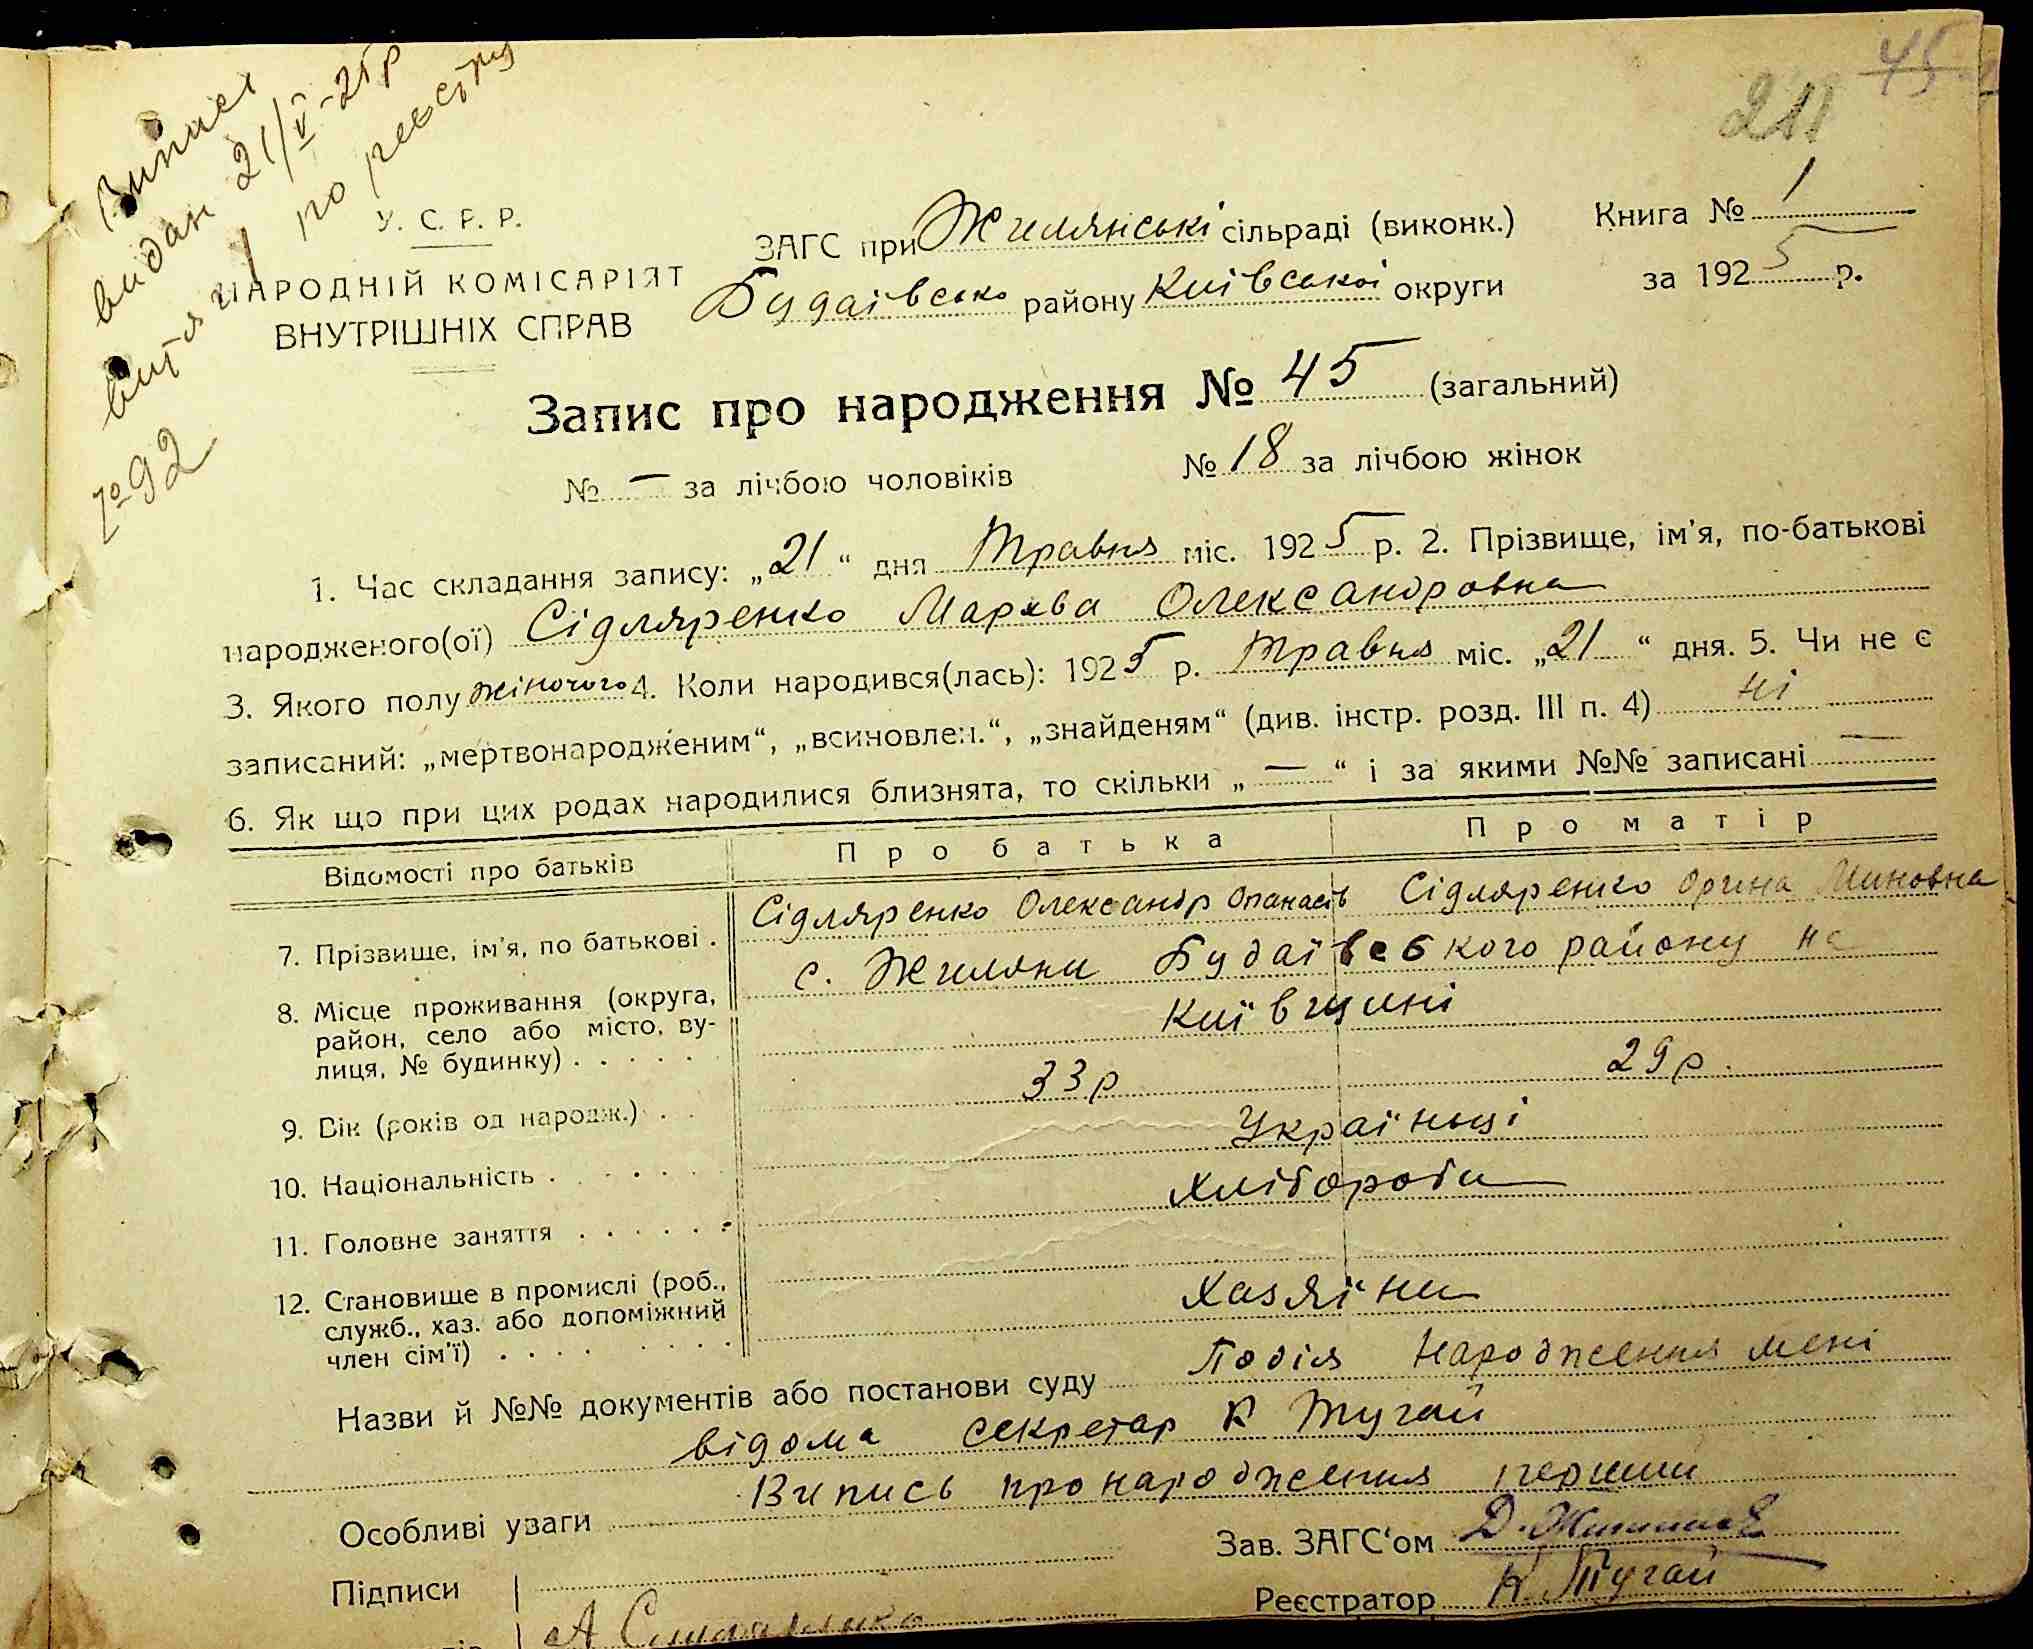 45
211
Випис
видан 21/V-25р
по реєстру
№ 92
У. С. Р. Р.
НАРОДНІЙ КОМІСАРІЯТ
ВНУТРІШНІХ СПРАВ
ЗАГС при Жилянські сільраді (виконк.)
Будаївсько району Київської округи
Книга № 1
за 1925 р.
Запис про народження № 45 (загальний)
№ — за лічбою чоловіків № 18 за лічбою жінок
1. Час складання запису: „21“ дня Травня міс. 1925 р. 2. Прізвище, ім'я, по-батькові
народженого(ої) Сідляренко Олександровна
3. Якого полу жіночого 4. Коли народився(лась): 1925 р. Травня міс. „21“ дня. 5. Чи не є
записаний: „мертвонародженим“, „всиновлен.“, „знайденям“ (див. інстр. розд. III п. 4) ні
6. Як що при цих родах народилися близнята, то скільки „—“ і за якими №№ записані —
Відомості про батьків Про батька Про матір
7. Прізвище, ім'я, по батькові . Сідляренко Олександр Опанасів Сідляренко Орина Миновна
8. Місце проживання (округа, с. Жиляни Будаївського району на
район, село або місто, ву- Київщині
лиця, № будинку) . . . . .
9. Вік (років од народж.) . . 33р 29р.
10. Національність . . . . . . Українці
11. Головне заняття . . . . . . Хлібороби
12. Становище в промислі (роб., Хазяїни
служб., хаз. або допоміжний
член сім'ї) . . . . . . . .
Назви й №№ документів або постанови суду Подія народження мені
відома секретар К Тугай
Особливі уваги Випись про народження перший
Зав. ЗАГС'ом
Підписи
Реєстратор К. Тугай